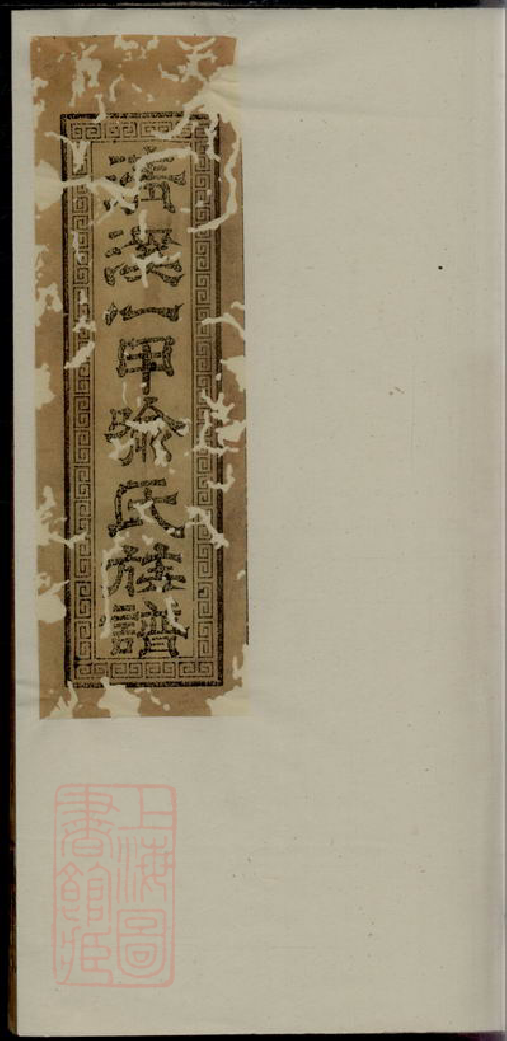 清溪一甲徐氏族譜
上海圖
書館藏